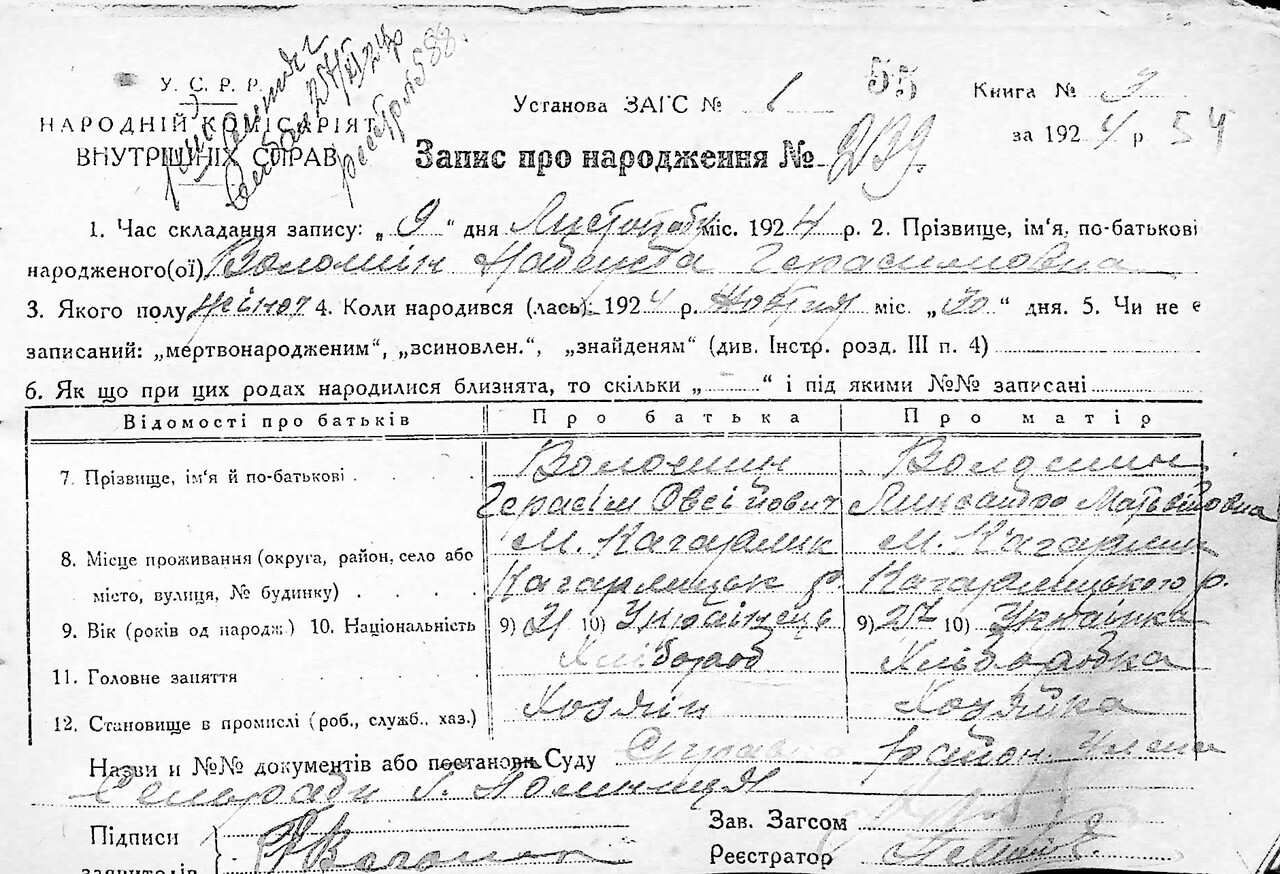 У. С. Р. Р.
НАРОДНІЙ КОМІСАРІЯТ
ВНУТРІШНІХ СПРАВ
Установа ЗАГС № 1
55
Книга № 9
за 1924 р 54
Запис про народження № 239.
1. Час складання запису: „9“ дня Листопада міс. 1924 р. 2. Прізвище, ім'я, по-батькові
народженого(ої) Волошин Надежда Герасимовна
3. Якого полу жіноч 4. Коли народився (лась): 1924 р. Жовтня міс. „30“ дня. 5. Чи не є
записаний: „мертвонародженим“, „всиновлен.“, „знайденям“ (див. Інстр. розд. III п. 4)
6. Як що при цих родах народилися близнята, то скільки „ “ і під якими №№ записані
Відомості про батьків Про батька Про матір
7. Прізвище, ім'я й по-батькові Волошин Волошин
Герасім Овсійович Матвійовна
8. Місце проживання (округа, район, село або М. Кагарлик М. Кагарлик
місто, вулиця, № будинку) Кагарлицьк р. Кагарлицького р.
9. Вік (років од народж.) 10. Національність 9) 10) Українець 9) 27 10) Українка
11. Головне заняття Хлібороб Хліборобка
12. Становище в промислі (роб., служб., хаз.) Хозяін Хозяйка
Назви и №№ документів або постанови Суду район
Сельради
Підписи
заявителів
Зав. Загсом
Реєстратор